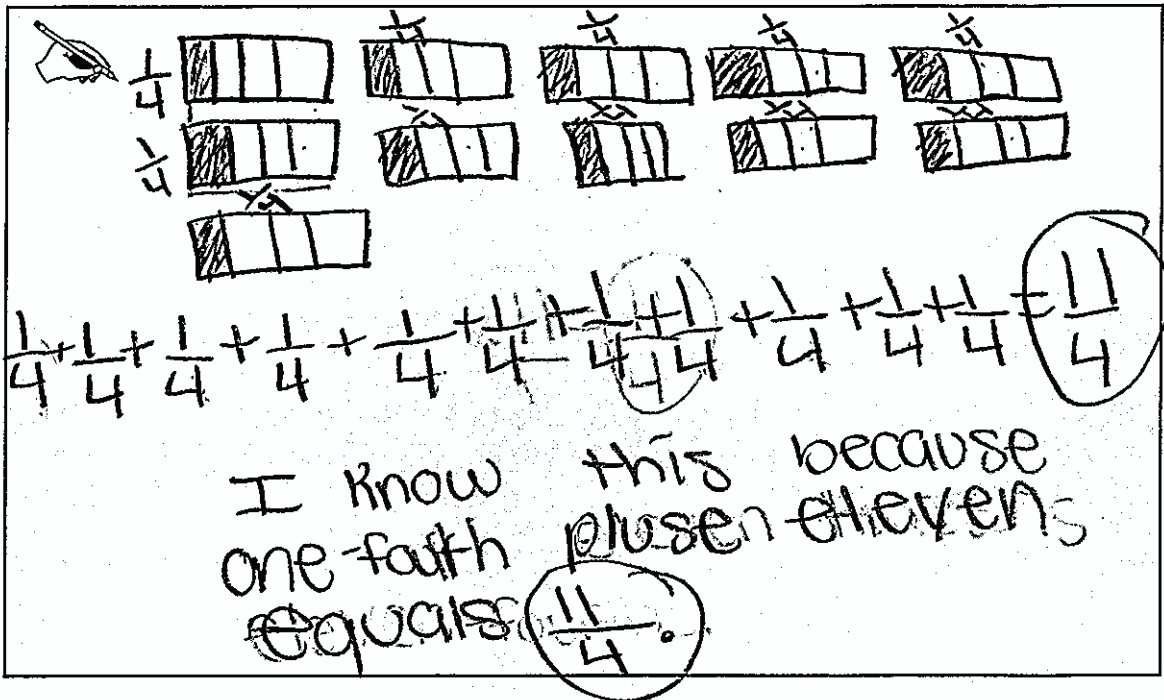 1/4 1/4 1/4 1/4 1/4
1/4 1/4 1/4 1/4 1/4
1/4
1/4 + 1/4 + 1/4 + 1/4 + 1/4 + 1/4 + 1/4 + 1/4 + 1/4 + 1/4 + 1/4 = 11/4
I know this because
one-fouth plusen elleven
equals 11/4.